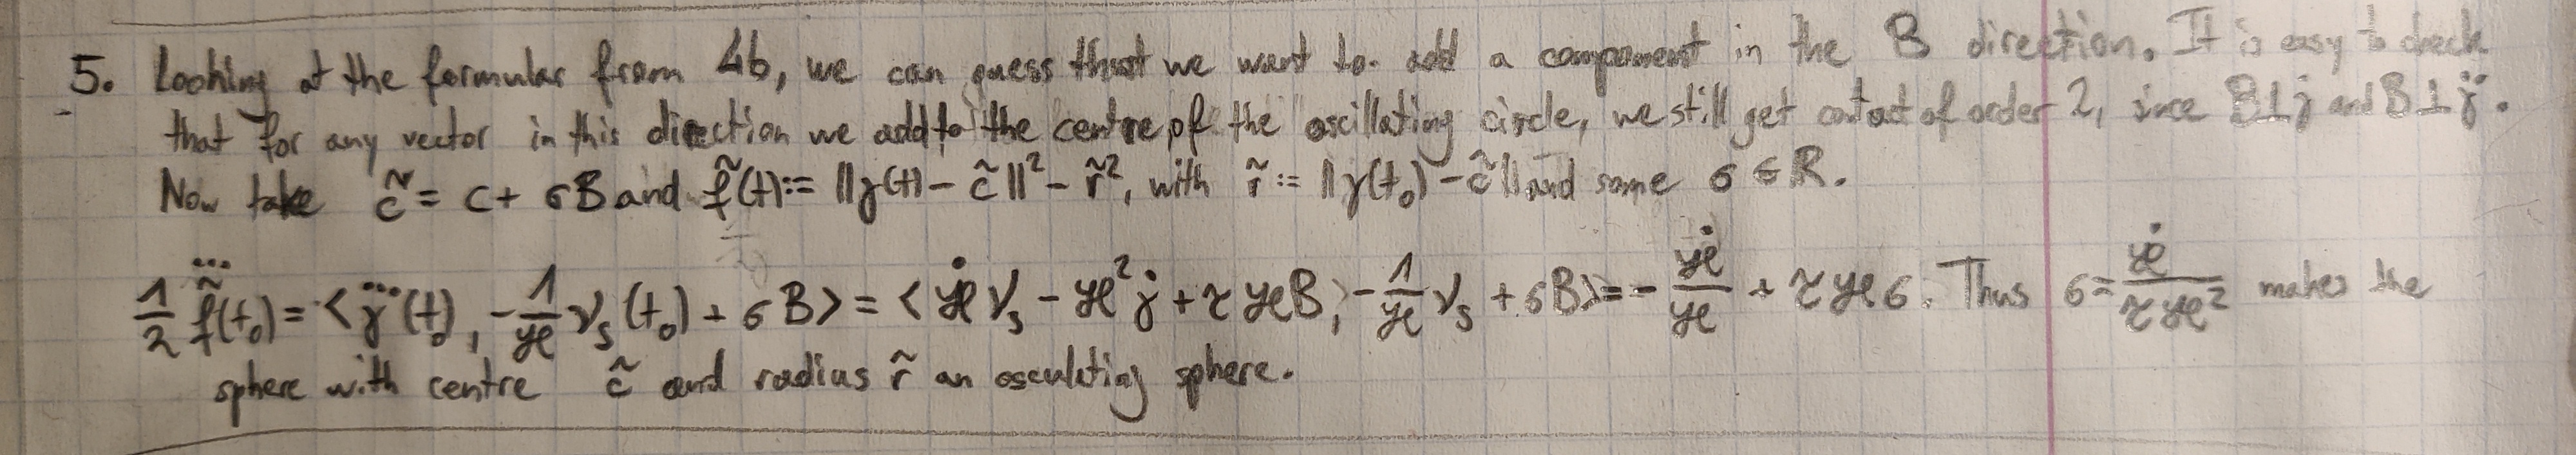 5. Looking at the formular from 4b, we can guess that we want to add a component in the B direction. It is easy to check
that for any vector in this direction we add to the centre of the oscillating circle, we still get contact of order 2, since B⊥γ̇ and B⊥γ̈.
Now take c̃ = c + σB and f̃(t) := ||γ(t) − c̃||² − r̃², with r̃ := ||γ(t₀) − c̃|| and some σ ∈ ℝ.
½ f̃⃛(t₀) = <γ⃛(t₀), −1/ϰ ν_s(t₀) + σB> = <ϰ̇ ν_s − ϰ² γ̇ + τϰB, −1/ϰ ν_s + σB> = − ϰ̇/ϰ + τϰσ. Thus σ = ϰ̇/(τϰ²) makes the
sphere with centre c̃ and radius r̃ an osculating sphere.